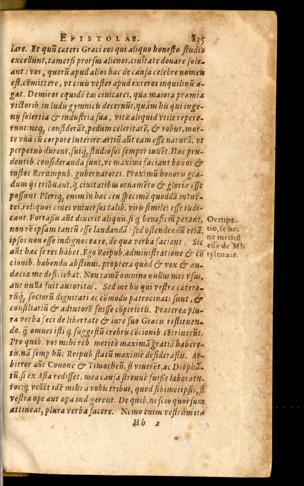 EPISTOLAE. 835
lare. Et quũ cæteri Græci eos qui aliquo honesto studio
excellunt, tametsi prorsus alienos, ciuitate donare sole-
ant: vos, quorũ apud alios hac de causa celebre nomen
est, cõmittere, vt ciuis vester apud exteros inquilinũ a-
gat. Demiror equidẽ tãs ciuitates, quæ maiora præmia
victorib. in ludis gymnicis decernũt, quàm his qui inge-
nij solertia & industria sua, vitæ aliquid vtile repere-
runt: neq; considerãt, pedum celeritatẽ, & robur, mor-
te vnà cũ corpore interire: artiũ aũt eam esse naturã, vt
perpetuò durent, suiq; studiosos semper iuuẽt. Hæc pru-
dentib. consideranda sunt, vt maximi faciant bonos &
iustos Rerumpub. gubernatores. Proximũ honoris gra-
dum ijs tribuant, q; ciuitatibus ornamẽto & gloriæ esse
possunt
cant. Fortassis aũt dixerit aliquis, si q; beneficiũ petant,
non re ipsam tantũ esse laudandã: sed ostendendũ etiã,
ipsos non esse indignos ea re, de qua verba faciant. Sic
aũt hac se res habet. Ego Reipub. administratione & cõ
cionib. habendis abstinui, propterea quòd & vox & au-
dacia me deficiebat. Non tamẽ omnino nullius
aut nulla fuit autoritas. Sed me his qui vestræ cætero-
rũq; sociorũ dignitati ac cõmodis patrocinati sunt, &
consiliariũ & adiutorẽ fuisse cõperietis. Præterea plu-
ra verba feci de libertate & iure suo Græcis restituen-
do, q; omnes isti q; suggestũ crebris cõcionib. obtriuerũt.
Pro quib. vos mihi reb. meritò maximã gratiã habere-
tis. nã semp hũc Reipub. statũ maximè desiderastis. Ar-
bitror aũt Cononẽ & Timotheũ, si viuerẽt, ac Diophã-
tũ, si ex Asia redisset, mea causa strenuè fuisse laboratu-
ros: q; vellẽt idẽ mihi à vobis tribui, quod sibimetipsis, si
vestra ope aut opa indigerent. De quib. nescio quorsum
attineat, plura verba facere. Nemo enim vestrũm ita
Hh 2
Occupa-
tio, se be-
ne meritũ
esse de Mi-
tylenæis.